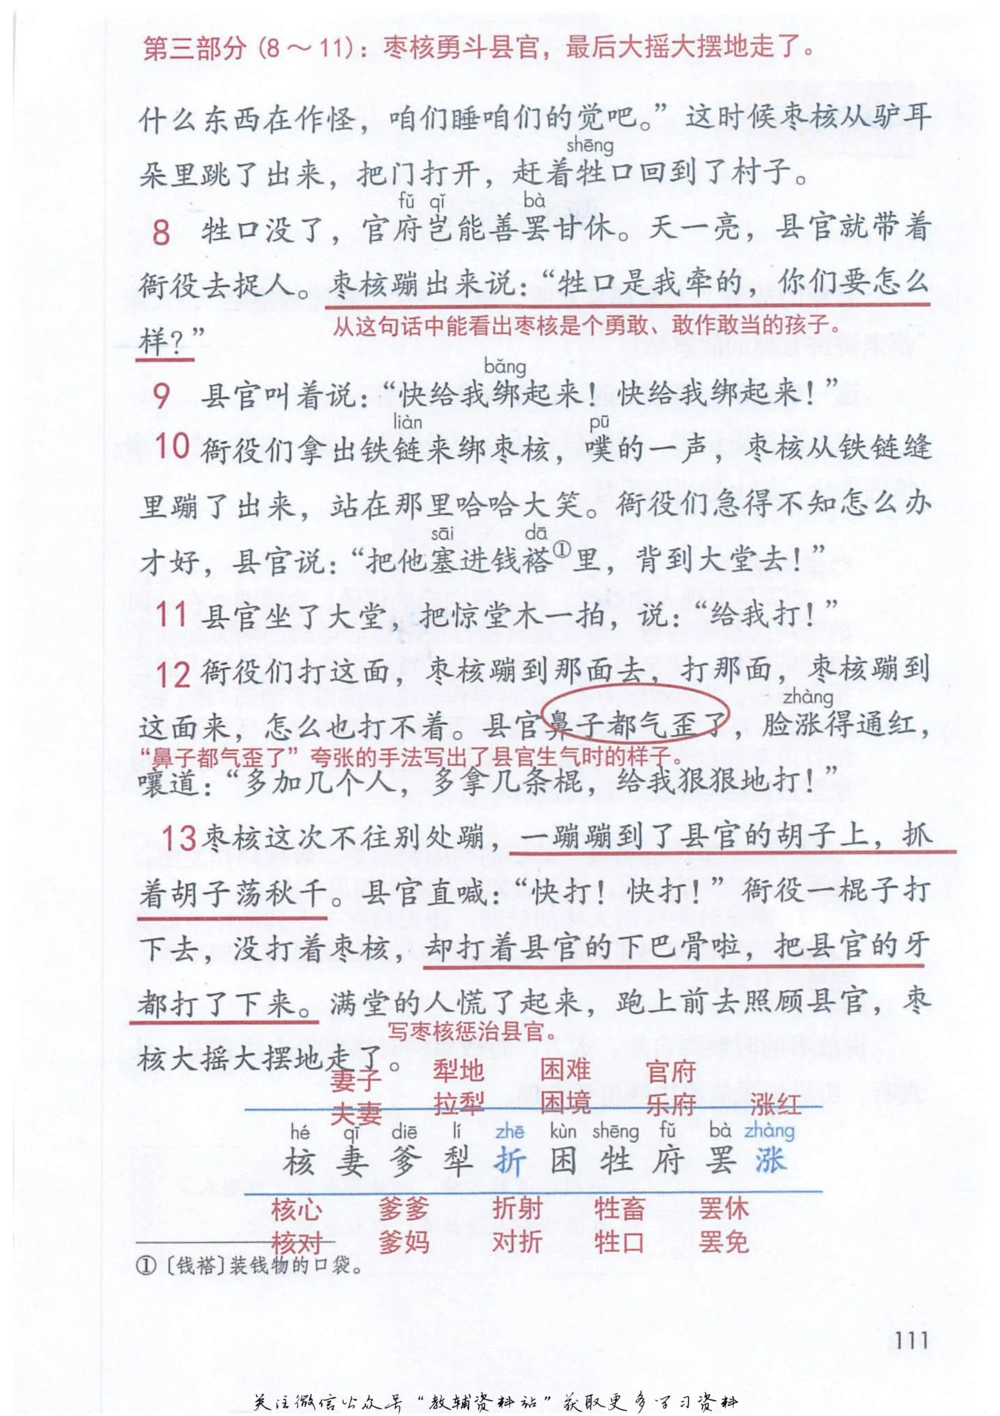 第三部分(8～11)：枣核勇斗县官，最后大摇大摆地走了。
什么东西在作怪，咱们睡咱们的觉吧。”这时候枣核从驴耳
shēng
朵里跳了出来，把门打开，赶着牲口回到了村子。
fǔ qǐ bà
8 牲口没了，官府岂能善罢甘休。天一亮，县官就带着
衙役去捉人。枣核蹦出来说：“牲口是我牵的，你们要怎么
从这句话中能看出枣核是个勇敢、敢作敢当的孩子。
样？”
bǎng
9 县官叫着说：“快给我绑起来！快给我绑起来！”
liàn pū
10 衙役们拿出铁链来绑枣核，噗的一声，枣核从铁链缝
里蹦了出来，站在那里哈哈大笑。衙役们急得不知怎么办
sāi dā
才好，县官说：“把他塞进钱褡①里，背到大堂去！”
11 县官坐了大堂，把惊堂木一拍，说：“给我打！”
12 衙役们打这面，枣核蹦到那面去，打那面，枣核蹦到
zhàng
这面来，怎么也打不着。县官鼻子都气歪了，脸涨得通红，
“鼻子都气歪了”夸张的手法写出了县官生气时的样子。
嚷道：“多加几个人，多拿几条棍，给我狠狠地打！”
13 枣核这次不往别处蹦，一蹦蹦到了县官的胡子上，抓
着胡子荡秋千。县官直喊：“快打！快打！”衙役一棍子打
下去，没打着枣核，却打着县官的下巴骨啦，把县官的牙
都打了下来。满堂的人慌了起来，跑上前去照顾县官，枣
写枣核惩治县官。
核大摇大摆地走了。
妻子 犁地 困难 官府
夫妻 拉犁 困境 乐府 涨红
hé qī diē lí zhē kùn shēng fǔ bà zhàng
核 妻 爹 犁 折 困 牲 府 罢 涨
核心 爹爹 折射 牲畜 罢休
核对 爹妈 对折 牲口 罢免
①〔钱褡〕装钱物的口袋。
111
关注微信公众号“教辅资料站”获取更多学习资料